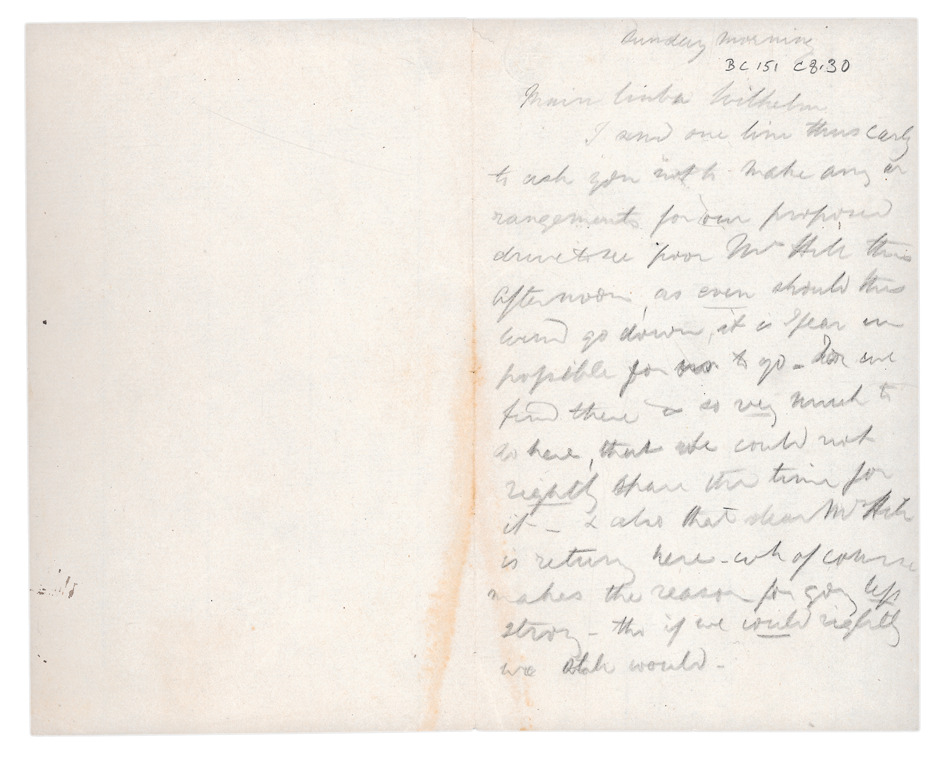 Sunday Morning
BC 151 C8.30
Mein lieber Wilhelm
I send one line thus early
to ask you not to make any ar
rangements for our proposed
drive to see poor Mrs Hill this
afternoon, as even should this
wind go down, it is I fear im
possible for us to go. For we
find there is so very much to
do here, that we could not
rightly spare the time for
it - & also that dear Mrs Hill
is returng here - wh of course
makes the reason for going less
strong - tho if we could rightly
we would -